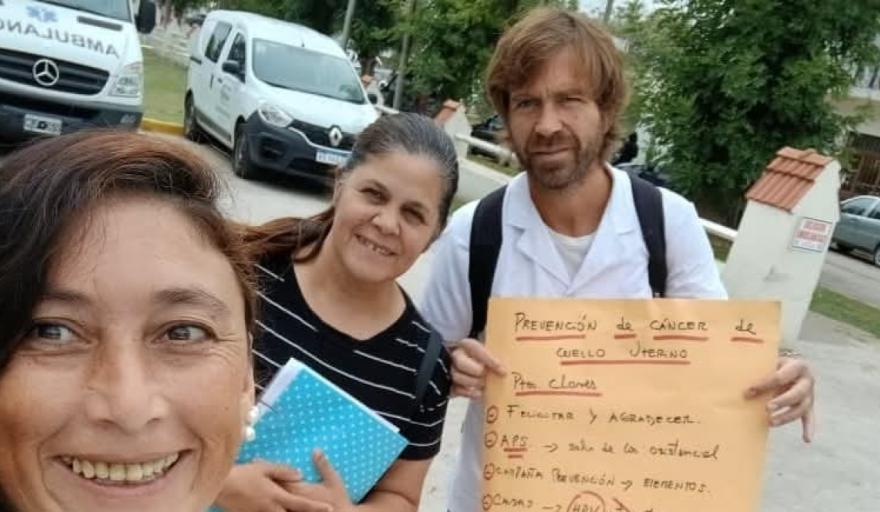 AMBULANC
PREVENCIÓN de CÁNCER de
CUELLO UTERINO
Ptos Claves
FELICITAR Y AGRADECER.
APS → salir de lo asistencial
CAMPAÑA PREVENCIÓN → ELEMENTOS.
CASAS → HPV